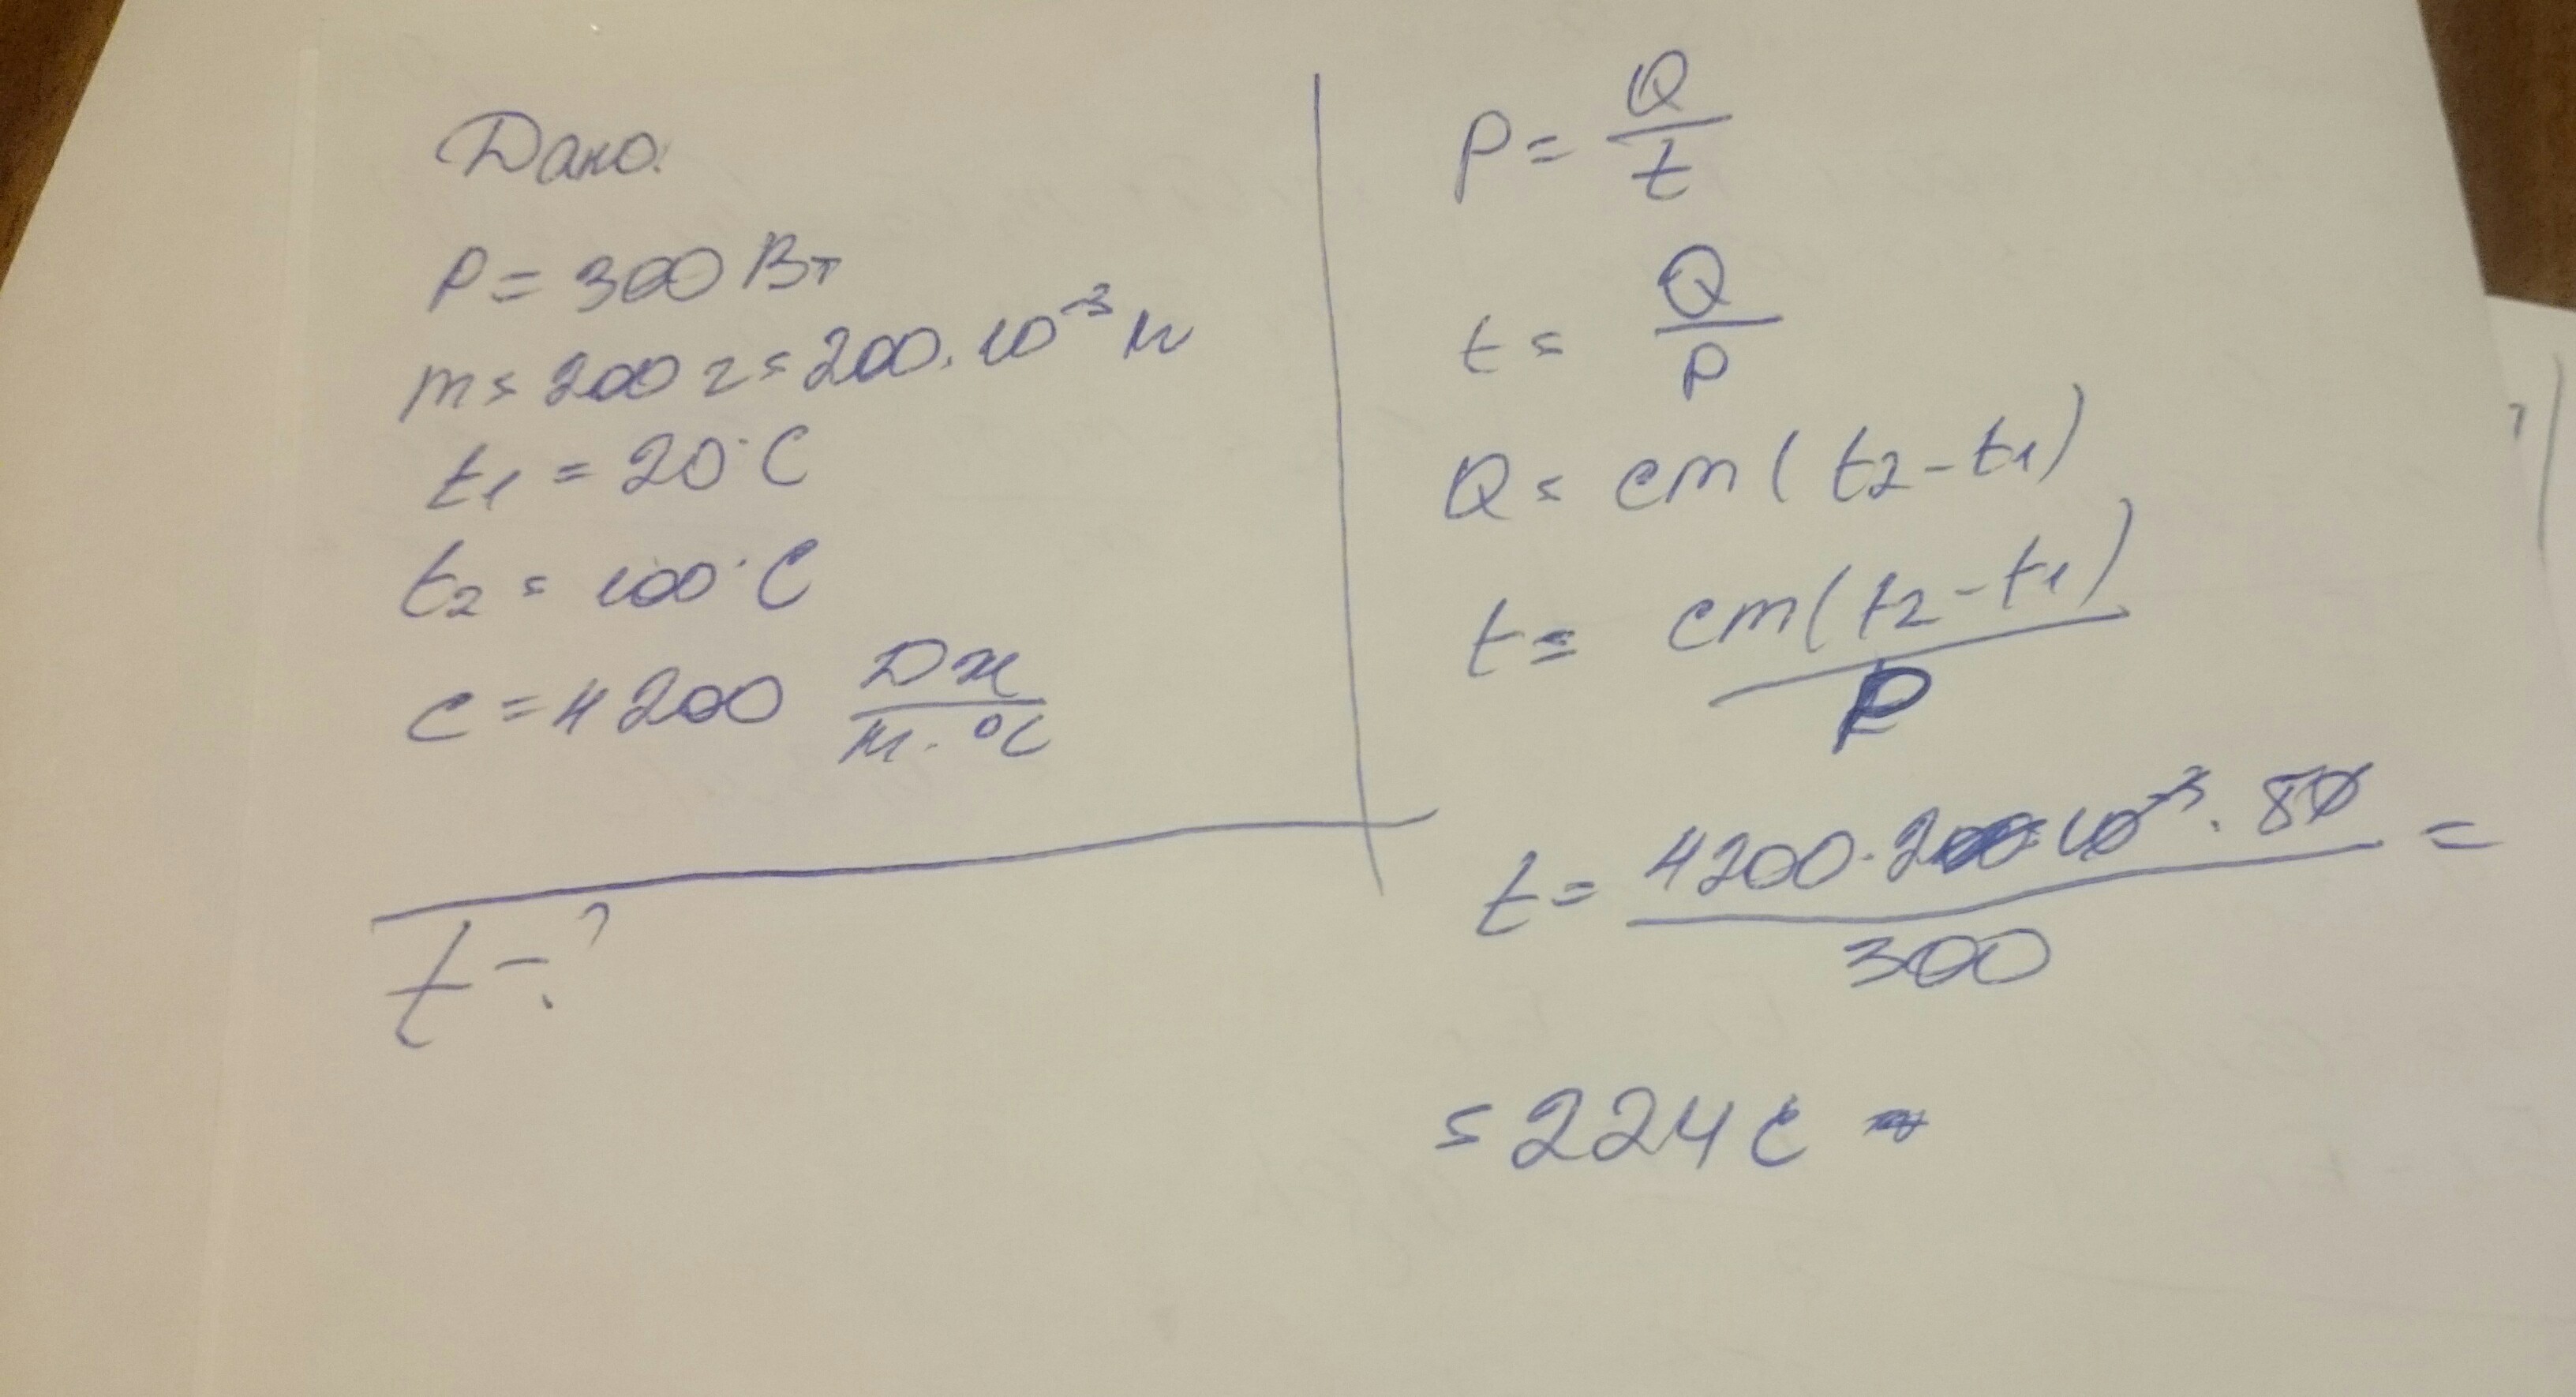 Дано:
P = 300 Вт
m = 200 г = 200 · 10⁻³ кг
t₁ = 20°C
t₂ = 100°C
c = 4200 Дж / кг · °C
t - ?
P = Q / t
t = Q / P
Q = cm(t₂ - t₁)
t = cm(t₂ - t₁) / P
t = 4200 · 200 · 10⁻³ · 80 / 300 =
= 224 c